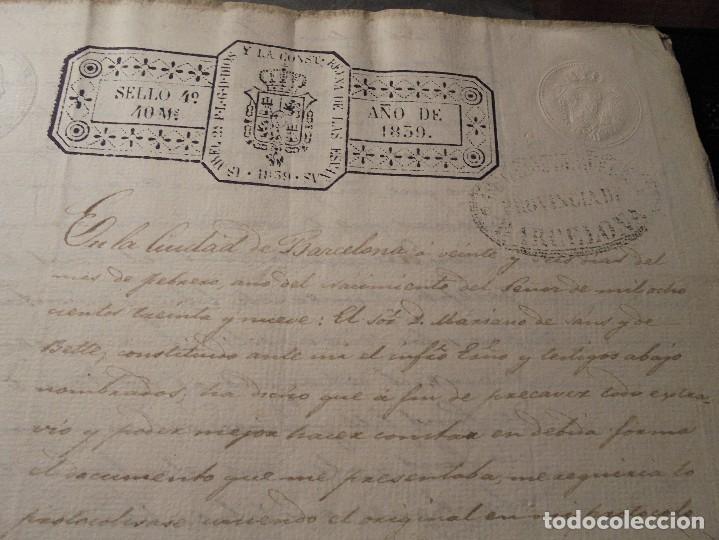 SELLO 4º
40 Ms
ISABEL 2ª P.L.G. DE DIOS Y LA CONST. REYNA DE LAS ESPAÑAS
1839
AÑO DE
1839.
PROVINCIA DE
BARCELONA
En la Ciudad de Barcelona á veinte y dias del
mes de febrero, año del nacimiento del Señor de mil ocho
cientos treinta y nueve: El Sor. D. Mariano de Sans y de
constituido ante mi el infro Esno y testigos abajo
nombrados, ha dicho que á fin de precaver todo extra-
vio y poder mejor hacer constar en debida forma
el documento que me presentaba, me requiria lo
protocolisase, uniendo el original en mi protocolo
todocoleccion.net